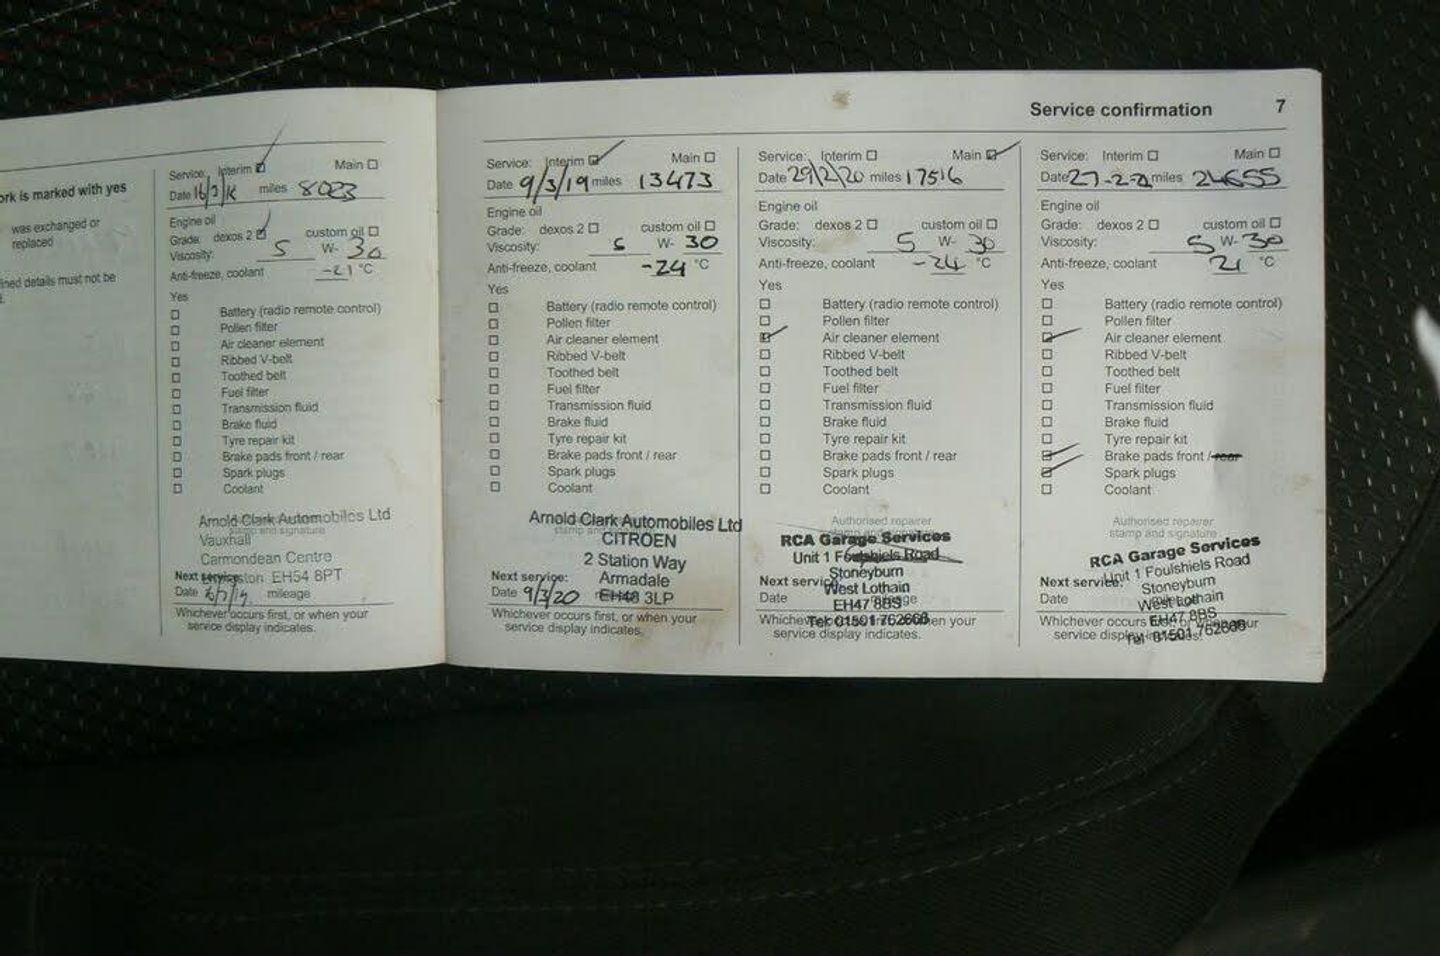 Service confirmation 7
ork is marked with yes
was exchanged or
replaced
ined details must not be
Service: Interim ☑ Main ☐
Date miles 8023
Engine oil
Grade: dexos 2 ☑ custom oil ☐
Viscosity: 5 W- 30
Anti-freeze, coolant -21 °C
Yes
☐ Battery (radio remote control)
☐ Pollen filter
☐ Air cleaner element
☐ Ribbed V-belt
☐ Toothed belt
☐ Fuel filter
☐ Transmission fluid
☐ Brake fluid
☐ Tyre repair kit
☐ Brake pads front / rear
☐ Spark plugs
☐ Coolant
Arnold Clark Automobiles Ltd
stamp and signature
Vauxhall
Carmondean Centre
EH54 8PT
Next service:
Date mileage
Whichever occurs first, or when your
service display indicates.
Service: Interim ☑ Main ☐
Date 9/3/19 miles 13473
Engine oil
Grade: dexos 2 ☐ custom oil ☐
Viscosity: 5 W- 30
Anti-freeze, coolant -24 °C
Yes
☐ Battery (radio remote control)
☐ Pollen filter
☐ Air cleaner element
☐ Ribbed V-belt
☐ Toothed belt
☐ Fuel filter
☐ Transmission fluid
☐ Brake fluid
☐ Tyre repair kit
☐ Brake pads front / rear
☐ Spark plugs
☐ Coolant
Arnold Clark Automobiles Ltd
stamp and signature
CITROEN
2 Station Way
Armadale
EH48 3LP
Next service:
Date 9/3/20
Whichever occurs first, or when your
service display indicates.
Service: Interim ☐ Main ☑
Date 29/2/20 miles 17516
Engine oil
Grade: dexos 2 ☐ custom oil ☐
Viscosity: 5 W- 30
Anti-freeze, coolant -24 °C
Yes
☐ Battery (radio remote control)
☐ Pollen filter
☑ Air cleaner element
☐ Ribbed V-belt
☐ Toothed belt
☐ Fuel filter
☐ Transmission fluid
☐ Brake fluid
☐ Tyre repair kit
☐ Brake pads front / rear
☐ Spark plugs
☐ Coolant
Authorised repairer
stamp and signature
RCA Garage Services
Unit 1 Foulshiels Road
Stoneyburn
West Lothain
EH47 8BS
Tel: 01501 762668
Next service:
Date mileage
Whichever occurs first, or when your
service display indicates.
Service: Interim ☐ Main ☐
Date miles 24655
Engine oil
Grade: dexos 2 ☐ custom oil ☐
Viscosity: 5 W- 30
Anti-freeze, coolant 21 °C
Yes
☐ Battery (radio remote control)
☐ Pollen filter
☑ Air cleaner element
☐ Ribbed V-belt
☐ Toothed belt
☐ Fuel filter
☐ Transmission fluid
☐ Brake fluid
☐ Tyre repair kit
☑ Brake pads front / rear
☑ Spark plugs
☐ Coolant
Authorised repairer
stamp and signature
RCA Garage Services
Unit 1 Foulshiels Road
Stoneyburn
West Lothain
EH47 8BS
Tel 01501 762668
Next service:
Date mileage
Whichever occurs first, or when your
service display indicates.